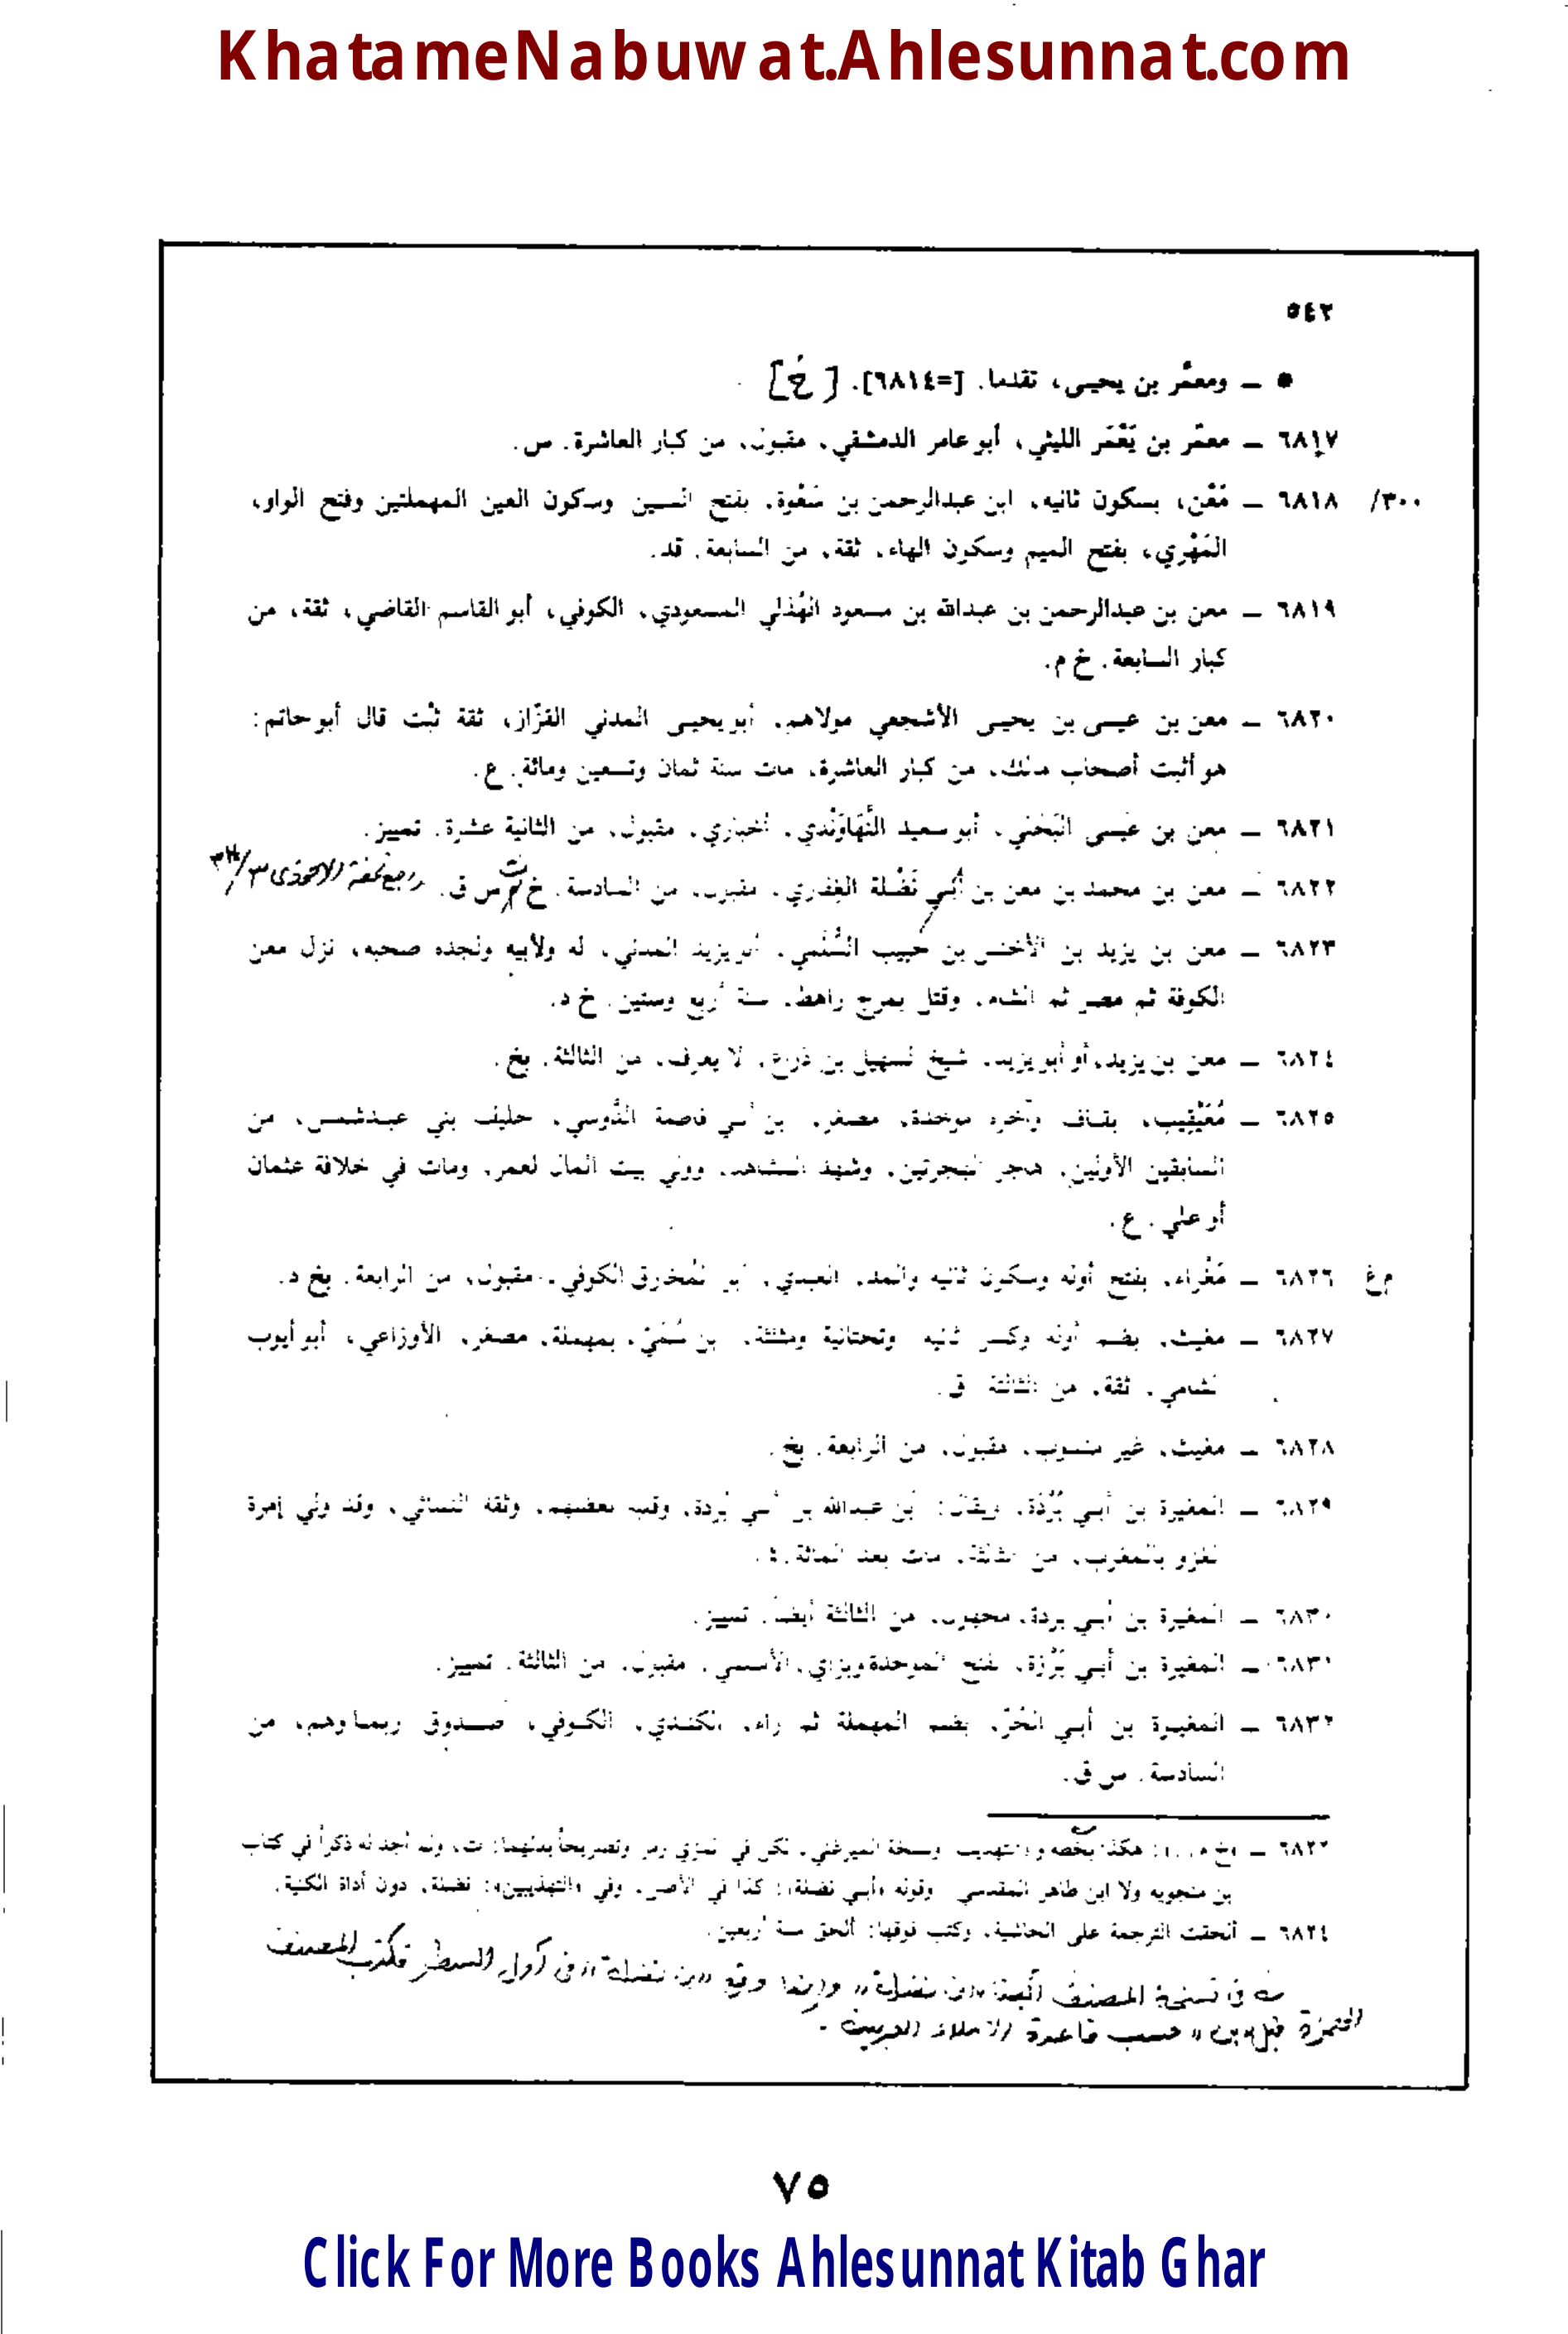 KhatameNabuwat.Ahlesunnat.com
٥٤٢
* ــ ومعمَّر بن يحيـى، تقدما. [=٦٨١٤]. [خ]
٦٨١٧ ــ معمَّر بن يَعْمَر الليثي، أبو عامر الدمشقي، مقبول، من كبار العاشرة. س.
٣٠٠/ ٦٨١٨ ــ مَعْن، بسكون ثانيه، ابن عبدالرحمن بن سَعْوة، بفتح السين وسكون العين المهملتين وفتح الواو،
المَهْري، بفتح الميم وسكون الهاء، ثقة، من السابعة. قد.
٦٨١٩ ــ معن بن عبدالرحمن بن عبدالله بن مسعود الهُذلي المسعودي، الكوفي، أبو القاسم القاضي، ثقة، من
كبار السابعة. خ م.
٦٨٢٠ ــ معن بن عيسى بن يحيـى الأشجعي مولاهم، أبو يحيـى المدني القزّاز، ثقة ثبْت قال أبو حاتم:
هو أثبت أصحاب مالك، من كبار العاشرة، مات سنة ثمان وتسعين ومائة. ع.
٦٨٢١ ــ معن بن عيسى البَجَلي، أبو سعيد النَّهاوَنْدي، أخباري، مقبول، من الثانية عشرة. تمييز.
٦٨٢٢ ــ معن بن محمد بن معن بن أبـي نَضْلة الغِفاري، مقبول، من السادسة. خ ت س ق. راجع تحفة الاحوذى
٦٨٢٣ ــ معن بن يزيد بن الأخنس بن حبيب السُّلَمي، أبو يزيد المدني، له ولأبيه ولجده صحبه، نزل معن
الكوفة ثم مصر ثم الشام، وقتل بمرج راهط، سنة أربع وستين. خ د.
٦٨٢٤ ــ معن بن يزيد، أو أبو يزيد، شيخ لسهيل بن ذراع، لا يعرف، من الثالثة. بخ.
٦٨٢٥ ــ مُعَيْقِيب، بقاف وآخره موحدة، مصغر، بن أبـي فاطمة الدَّوسي، حليف بني عبدشمس، من
السابقين الأولين، هاجر الهجرتين، وشهد المشاهد، وولي بيت المال لعمر، ومات في خلافة عثمان
أو علي. ع.
م غ ٦٨٢٦ ــ مَغْراء، بفتح أوله وسكون ثانيه والمد، العبدي، أبو المُخارق الكوفي، مقبول، من الرابعة. بخ د.
٦٨٢٧ ــ مغيث، بضم أوله وكسر ثانيه وتحتانية ومثلثة، بن سُمَيّ، بمهملة، مصغر، الأوزاعي، أبو أيوب
الشامي، ثقة، من الثالثة ق.
٦٨٢٨ ــ مغيث، غير منسوب، مقبول، من الرابعة. بخ.
٦٨٢٩ ــ المغيرة بن أبـي بُرْدة، ويقال: ابن عبدالله بن أبـي بُردة، وقلبه بعضهم، وثقه النسائي، وقد ولي إمرة
الغزو بالمغرب، من الثالثة، مات بعد المائة.
٦٨٣٠ ــ المغيرة بن أبـي بردة، مجهول، من الثالثة أيضاً. تمييز.
٦٨٣١ ــ المغيرة بن أبـي بَرْزة، بفتح الموحدة وبزاي، الأسلمي، مقبول، من الثالثة. تمييز.
٦٨٣٢ ــ المغيرة بن أبـي الحُرّ، بضم المهملة ثم راء، الكندي، الكوفي، صدوق ربما وهم، من
السادسة. س ق.
٦٨٢٢ ــ هكذا بخطه والتهذيب ونسخة الميرغني، لكن في المزي رمز وتصريحاً بدلهما: ت، ولم أجد له ذكراً في كتاب
بن منجويه ولا ابن طاهر المقدسي وقوله «أبـي نضلة»: كذا في الأصل، وفي «التهذيبين»: نضلة، دون أداة الكنية.
٦٨٢٤ ــ ألحقت الترجمة على الحاشية، وكتب فوقها: ألحق سنة أربعين.
في نسخة المصنف "بن نضلة" وإنما وقع "بن نضلة" في أول السطر فكتب المصنف
الهمزة قبل "بن" حسب قاعدة الاملاء العربيه.
٧٥
Click For More Books Ahlesunnat Kitab Ghar